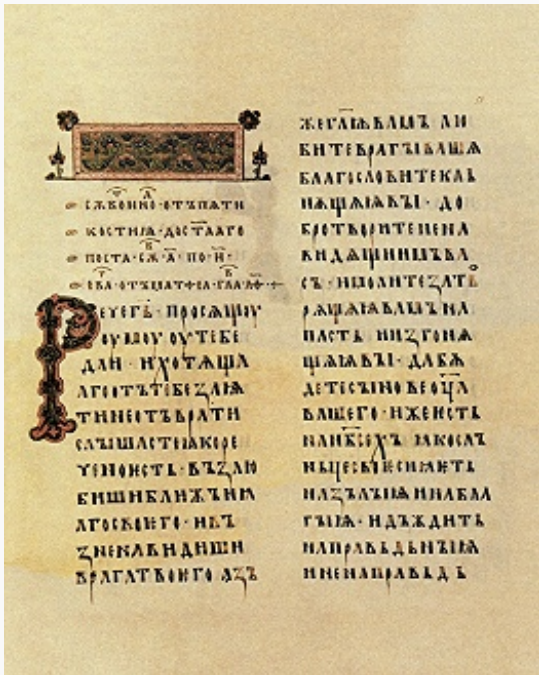 КОСТИꙖ·ДОС
ПОСТА·СѪ·А҃·ПО·Н҃·
ЕВА·ОТЪМАТФЕА·ГЛА
РЕЧЕГЬ·ПРОСѦЩОУ
ОУМОУ ОУТЕБЕ
ДАИ·ИХОТѦЩА
АГООТЪТЕБЕЗАѨ
ТИНЕОТЪВРАТИ
СЛЫШАСТЕꙖКОРЕ
ЧЕНОѤСТЬ·ВЪЗЛЮ
БИШИБЛИЖЬНꙖ
АГОСВОѤГО·ИВЪ
ЗНЕНАВИДИШИ
ВРАГАТВОѤГО АЗЪ
ЖЕГЛ҃ѬВАМЪ ЛЮ
БИТЕВРАГЫВАШѦ
БЛАГОСЛОВИТЕКЛЬ
НѪЩѦѨВЫ·ДО
БРОТВОРИТЕНЕНА
ВИДѦЩИИМЪВА
СЪ·ИМОЛИТЕЗАТВО
РѦЩѦѨВАМЪНА
ПАСТЬ ИИЗГОНѦ
ЩѦѨВЫ·ДАБѪ
ДЕТЕСЫНОВЕОЦ҃А
ВАШЕГО·ИЖЕѤСТЬ
НАНБ҃СЕХЪ ꙖКОСЛЪ
НЬЦЕСВОѤСИꙖѤТЬ
НАЗЪЛЫѨИНАБЛА
ГЫѨ·ИДЪЖДИТЬ
НАПРАВЬДЬНЫѨ
ИНЕНАПРАВЬДЬ